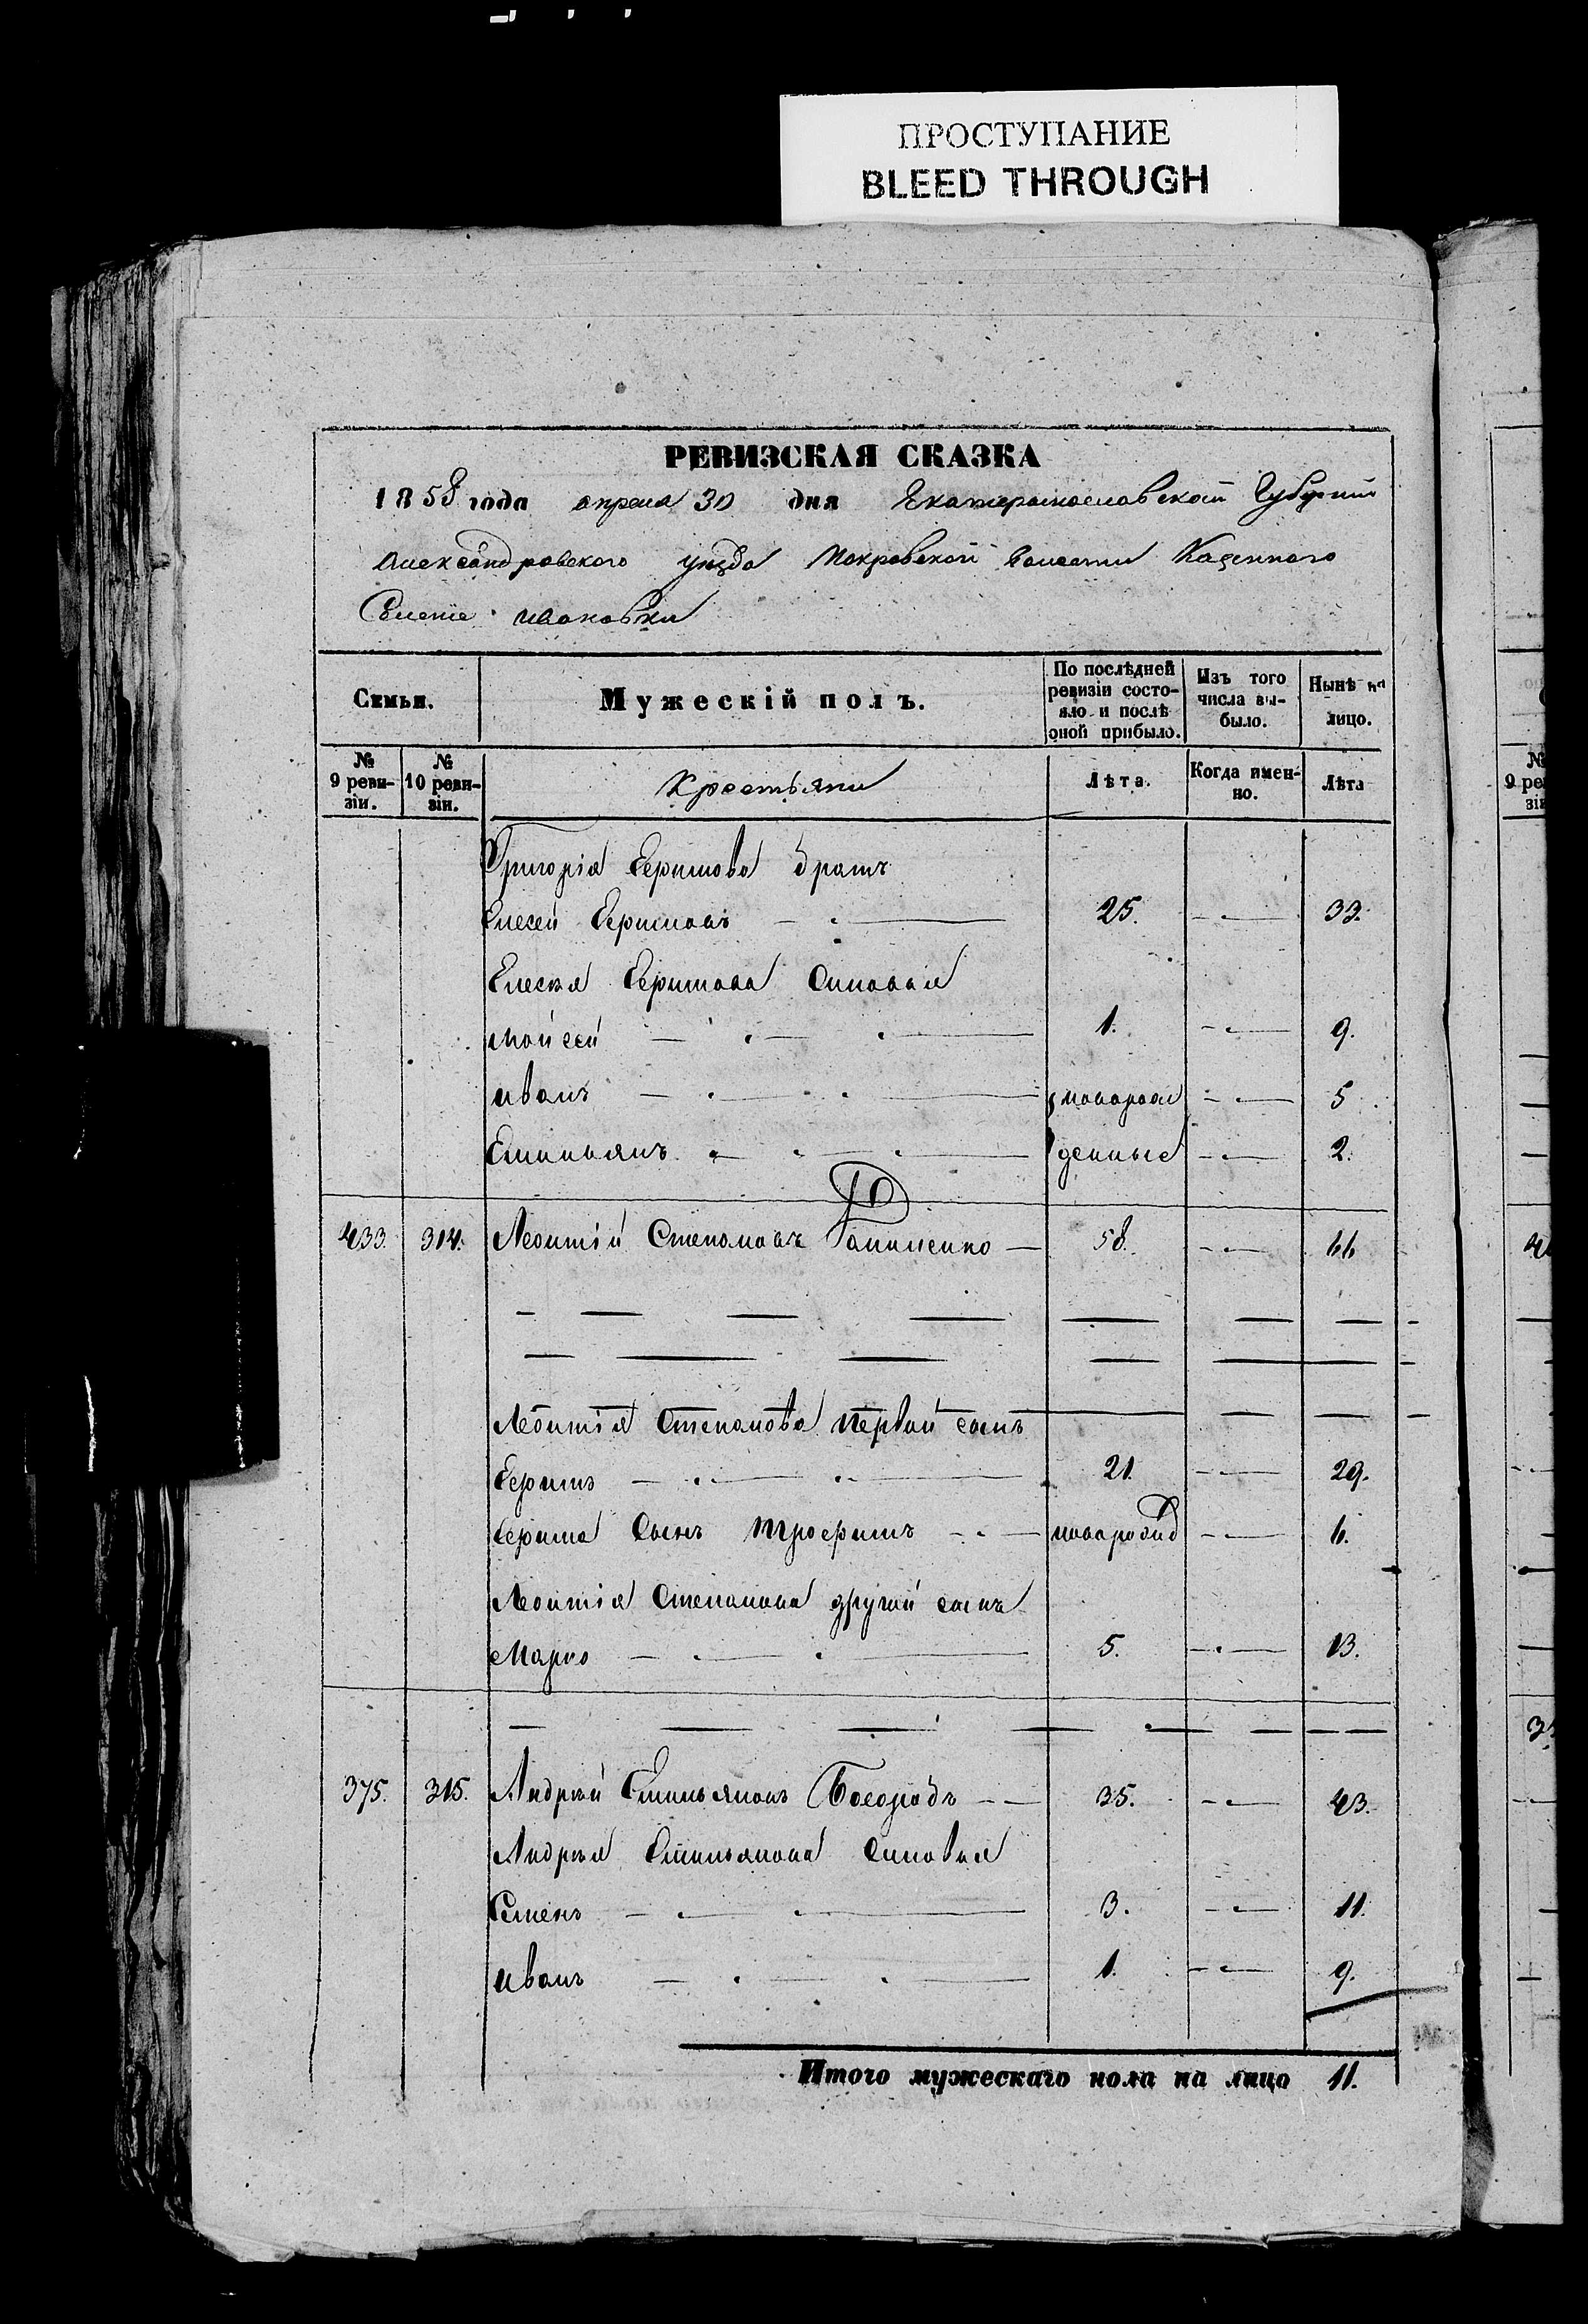 ПРОСТУПАНИЕ
BLEED THROUGH
РЕВИЗСКАЯ СКАЗКА
1858 года апреля 30 дня Екатеринославской Губернии
Александровского уезда Покровской волости Казенного
Селенія ивановки
Семьи. Мужескій полъ. По послѣдней ревизіи состояло и послѣ оной прибыло. Изъ того числа выбыло. Нынѣ на лицо.
№ 9 ревизіи. № 10 ревизіи. Крестьяни Лѣта. Когда именно. Лѣта
Григорія Ефимова братъ
Елесей Ефимовъ 25. 33.
Елесея Ефимова Синовья
Мойсей 1. 9.
иванъ новорож 5
Емильянъ денные 2.
433. 314. Леонтій Степановъ 58. 66
Леонтія Степанова первой сынъ
Ефимъ 21. 29.
Ефима Сынъ Трофимъ новорожд 6.
Леонтія Степанова другий сынъ
Марко 5. 13.
375. 315. Андрей Емильяновъ 35. 43.
Андрея Емильянова Синовья
Семенъ 3. 11.
иванъ 1. 9.
Итого мужескаго пола на лицо 11.